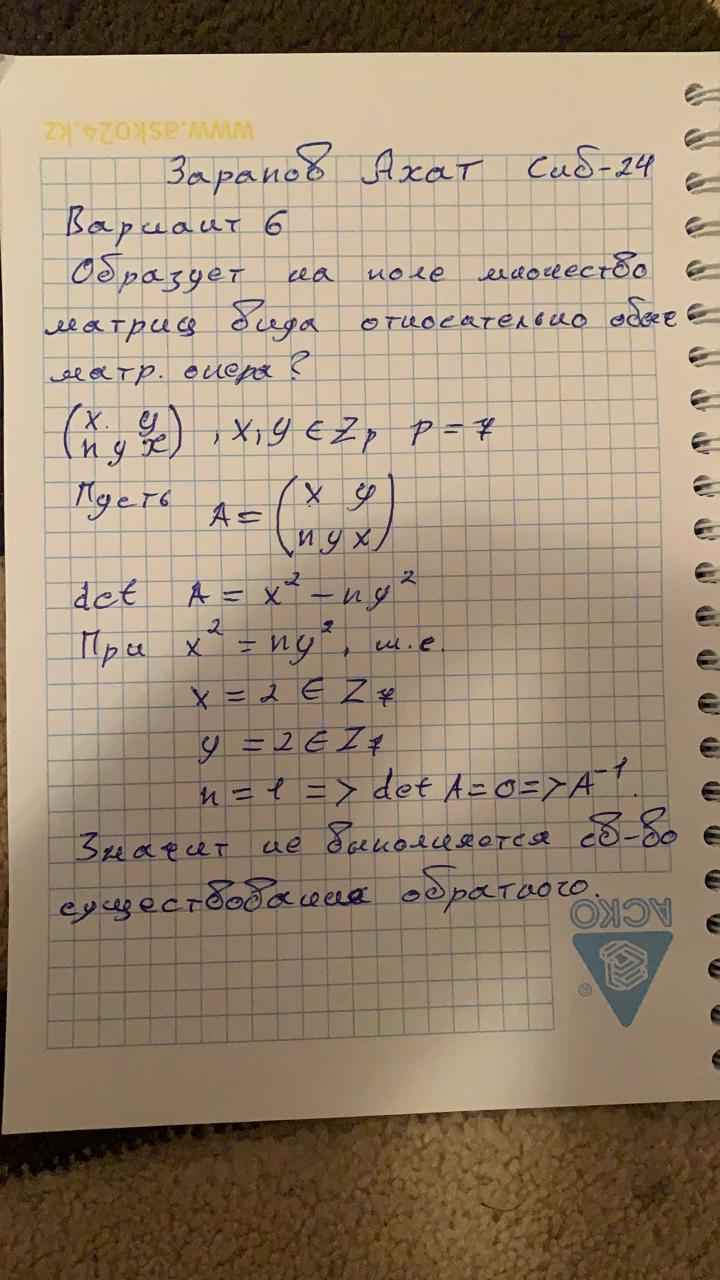 www.asko24.kz
Зарапов Ахат Сиб-24
Вариант 6
Образует ли поле множество
матриц вида относательно обыче
матр. опера?
(x y
ny x) , x, y ∈ Zp p = 7
Пусть A = (x y
ny x)
det A = x² - ny²
При x² = ny², т.е.
x = 2 ∈ Z7
y = 2 ∈ Z7
n = 1 => det A = 0 => A⁻¹.
Значит не выполняется св-во
существования обратного.
АСКО
®